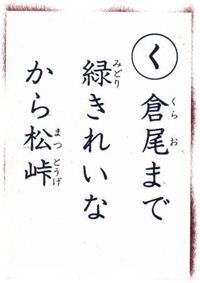 く
倉尾まで
緑きれいな
から松峠
くらお
みどり
まつとうげ